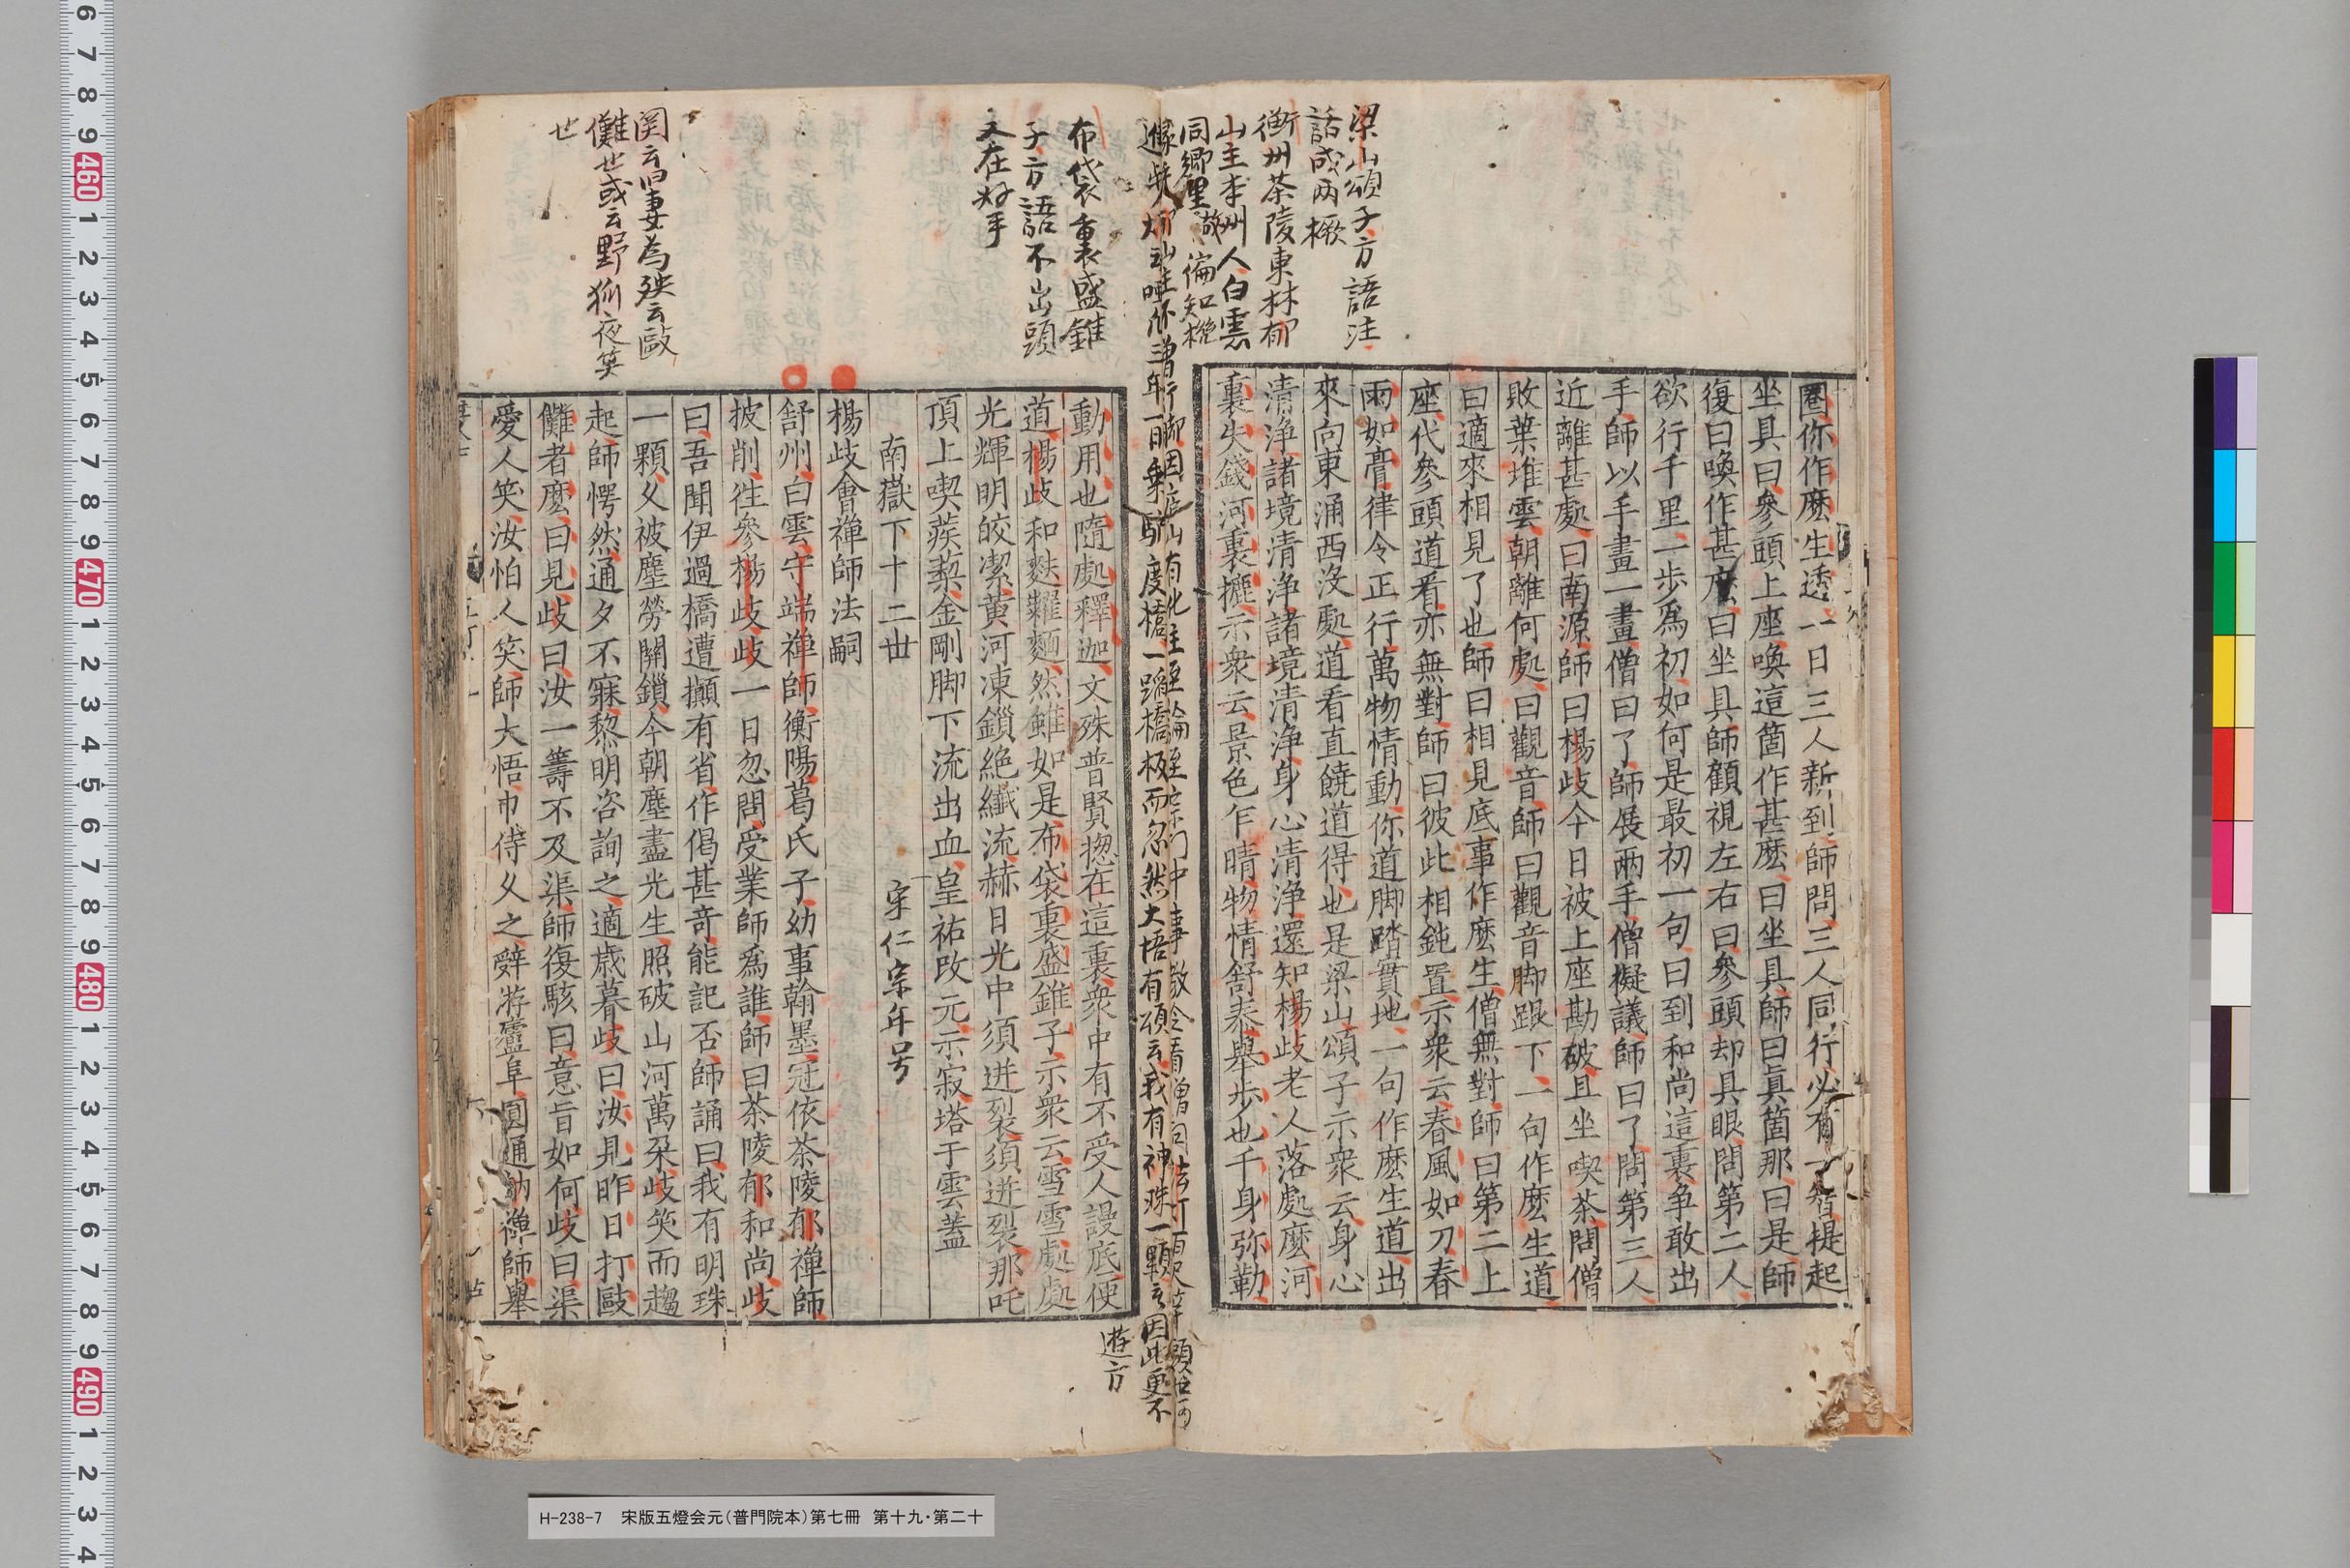 梁山頌子方語注
話成兩橛
衡州茶陵東林郁
山主本州人白雲
同鄉里
圈你作麽生透一日三人新到師問三人同行必有一智提起
坐具曰參頭上座喚這箇作甚麽曰坐具師曰眞箇那曰是師
復曰喚作甚麽曰坐具師顧視左右曰參頭却具眼問第二人
欲行千里一步爲初如何是最初一句曰到和尚這裏争敢出
手師以手畫一畫僧曰了師展兩手僧擬議師曰了問第三人
近離甚處曰南源師曰楊歧今日被上座勘破且坐喫茶問僧
敗葉堆雲朝離何處曰觀音師曰觀音脚跟下一句作麽生道
曰適來相見了也師曰相見底事作麽生僧無對師曰第二上
座代參頭道看亦無對師曰彼此相鈍置示衆云春風如刀春
雨如膏律令正行萬物情動你道脚踏實地一句作麽生道出
來向東涌西沒處道看直饒道得也是梁山頌子示衆云身心
清浄諸境清浄諸境清浄身心清浄還知楊歧老人落處麽河
裏失錢河裏摝示衆云景色乍晴物情舒泰舉步也千身弥勒
年一日乗驢度橋一踏橋板而忽然大悟有頌云我有神珠一顆云因此更不
遊方
布袋裏盛錐
子方語不出頭
又在好手
動用也隨處釋迦文殊普賢揔在這裏衆中有不受人謾底便
道楊歧和麩糶麵然雖如是布袋裏盛錐子示衆云雪雪處處
光輝明皎潔黄河凍鎖絶纖流赫日光中須迸裂須迸裂那吒
頂上喫蒺䔧金剛脚下流出血皇祐改元示寂塔于雲蓋
宋仁宗年号
南嶽下十二世
楊歧會禅師法嗣
舒州白雲守端禅師衡陽葛氏子幼事翰墨冠依茶陵郁禅師
披削徃參楊歧歧一日忽問受業師爲誰師曰茶陵郁和尚歧
曰吾聞伊過橋遭攧有省作偈甚竒能記否師誦曰我有明珠
一顆久被塵勞關鎖今朝塵盡光生照破山河萬朶歧笑而趨
起師愕然通夕不寐黎明咨詢之適歲暮歧曰汝見昨日打敺
儺者麽曰見歧曰汝一籌不及渠師復駭曰意旨如何歧曰渠
愛人笑汝怕人笑師大悟巾侍久之辤游廬阜圓通訥禅師舉
儺也或云野狐夜笑
也
H-238-7 宋版五燈会元（普門院本）第七冊 第十九・第二十